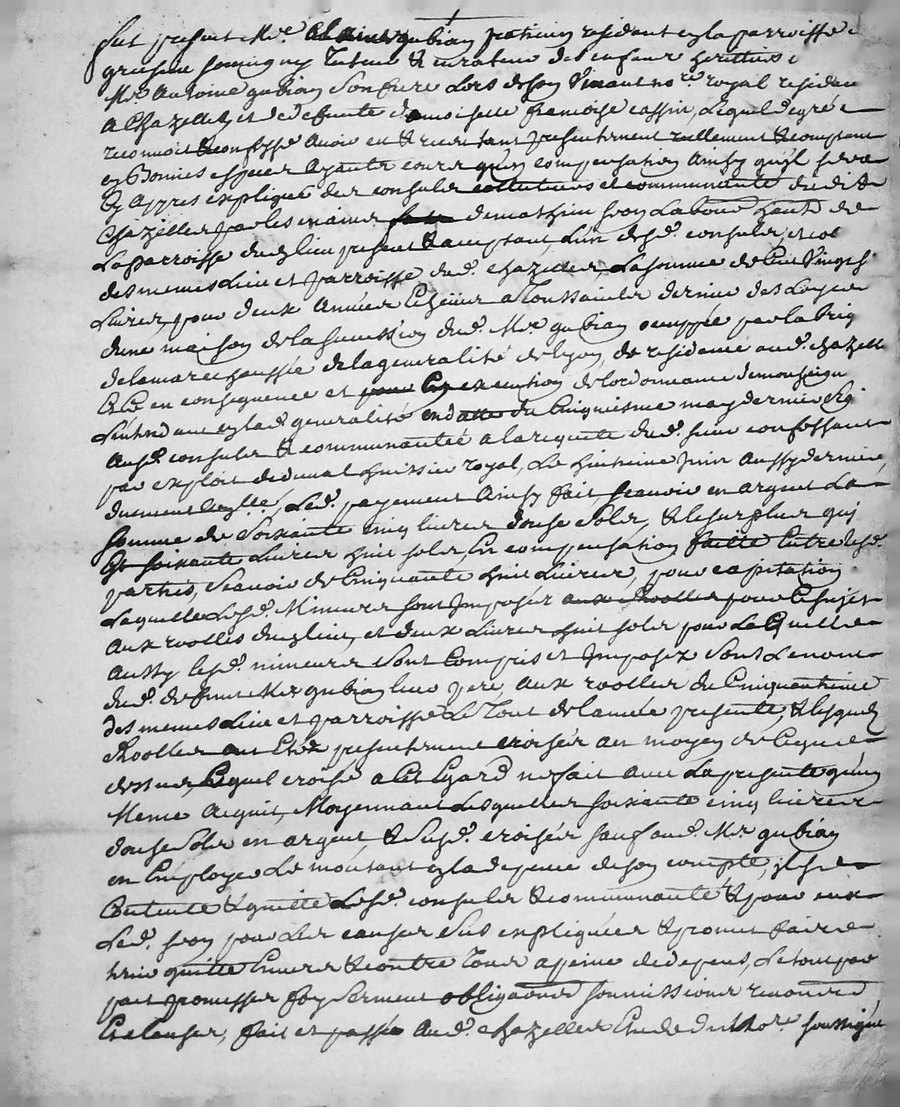 fut present Mre gubian praticien residant en la parroisse
grezieu souvigny Tuteur & curateur des enfans heritiers
Mre Antoine gubian son frere Lors de son vivant nore royal residant
a Chazelles, et de defunte damoiselle francoise cassin, Lequel de gré
reconnoit & confesse avoir eu & receu tant presentement reellement & comptant
en bonnes especes ayant cours qu'en compensation Ainsy qu'il sera
cy appres expliqué des consuls collecteurs et communauté dudit
Chazelles par les mains de mathieu Laboureur de
La parroisse dud. lieu present & acceptant L'un desd. consuls
des memes Lieu et parroisse dud. chazelles La somme de Cent Vingt
Livres, pour deux Années Echeues a Toussaints dernier des Loyers
d'une maison de la succession dud. Mre gubian occuppée par la brig
de la marechaussée de la generalité de lyon, de residance aud. chazelles
Et ce en consequence et execution de lordonnance de monseigr
L'intendant en lad. generalité du Cinquiesme may dernier
Ausd. consuls & communauté a la requete dud. sieur confessant
par exploit de huissier royal, Le huitieme Juin Aussy dernier
duement Led. payement Ainsy fait scavoir en argent La
somme de Soixante cinq livres douse Sols, & le surplus qui
Est soixante Livres huit sols En compensation faitte Entre lesd.
parties, Scavoir de Cinquante huit Livres, pour capitation
Laquelle Lesd. Mineurs sont Imposés pour ce sujet
Aux roolles dud. lieu, et deux Livres huit sols pour Laquelle
Aussy lesd. mineurs Sont Compris et Imposez Sous Le nom
dud. defunt Mre gubian leur pere, Aux roolles du Cinquantieme
des memes Lieu et parroisse Le Tout de l'année presente, & lesquels
Roolles ont Eté presentement croisés au moyen de ce que
dessus, Lequel croisé a Cet Egard ne fait avec La presente qu'un
Meme Acquit, Moyennant Lesquelles soixante cinq livres
douse Sols en argent, & Susd. croisés sauf aud. Mre gubian
en Employer Le montant en la depence de son compte, il s'est
Contenté & quitte Lesd. consuls & communauté & pour eux
Led. pour Les causes Sus expliquées & promet faire
tenir quitte Envers & contre Tous a peine de depens, Le tout par
pact promesses foy serment obligaons soumissions renonons
Et clauses, fait et passé Aud. chazelles Etude du nore soussigné